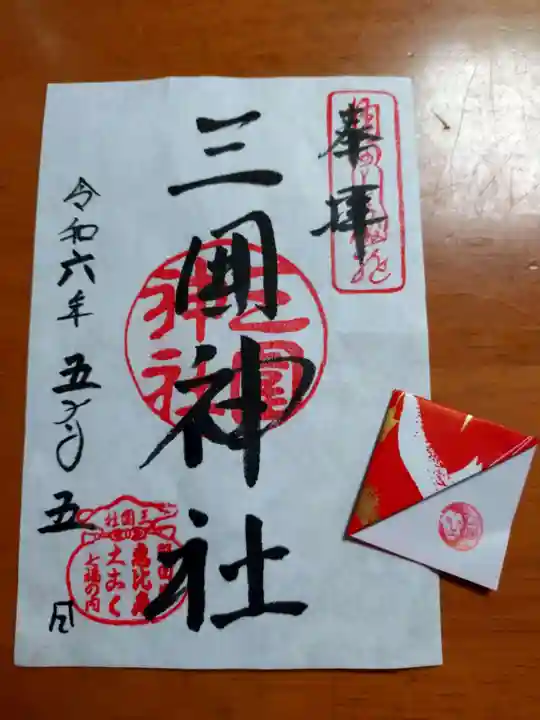 奉拝
三囲神社
三圍神社
令和六年五月五日
三囲社
恵比寿
大こく
七福の内